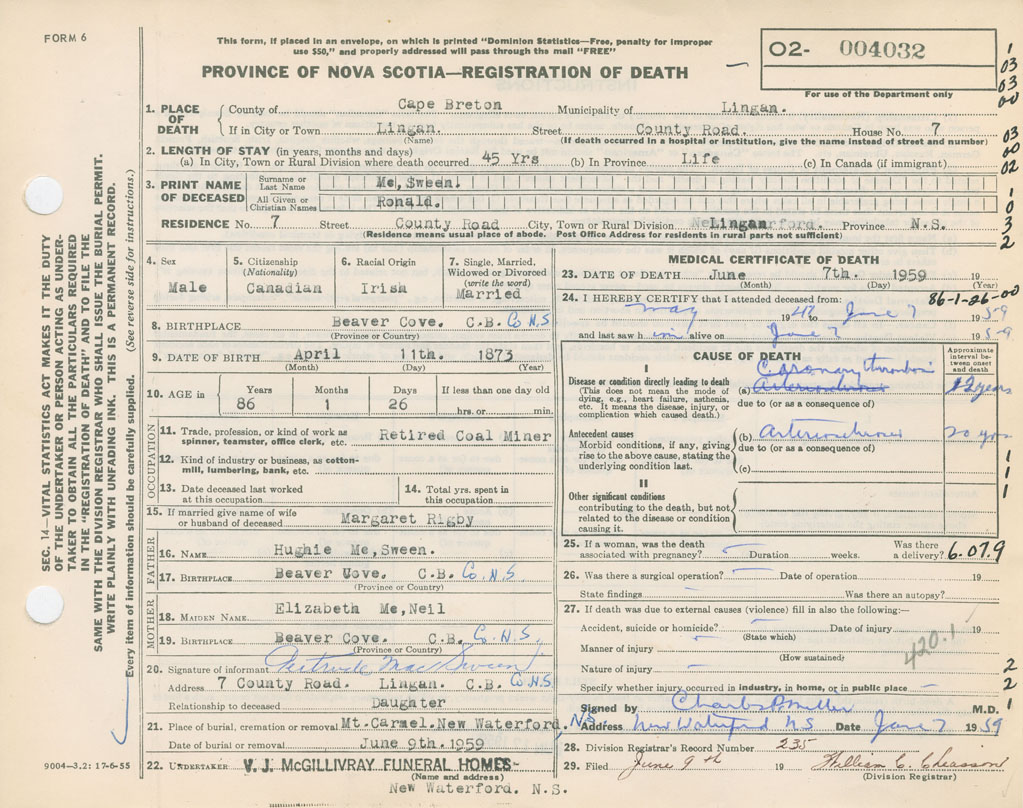 FORM 6
This form, if placed in an envelope, on which is printed "Dominion Statistics—Free, penalty for improper
use $50," and properly addressed will pass through the mail "FREE"
PROVINCE OF NOVA SCOTIA—REGISTRATION OF DEATH
02- 004032
For use of the Department only
1 03 03 00
03 00 02
1 0 3 2
SEC. 14—VITAL STATISTICS ACT MAKES IT THE DUTY
OF THE UNDERTAKER OR PERSON ACTING AS UNDER-
TAKER TO OBTAIN ALL THE PARTICULARS REQUIRED
IN THE "REGISTRATION OF DEATH" AND TO FILE THE
SAME WITH THE DIVISION REGISTRAR WHO SHALL ISSUE THE BURIAL PERMIT.
WRITE PLAINLY WITH UNFADING INK. THIS IS A PERMANENT RECORD.
Every item of information should be carefully supplied. (See reverse side for instructions.)
1. PLACE OF DEATH
County of Cape Breton Municipality of Lingan.
If in City or Town Lingan. Street County Road. House No. 7
(Name) (If death occurred in a hospital or institution, give the name instead of street and number)
2. LENGTH OF STAY (in years, months and days)
(a) In City, Town or Rural Division where death occurred 45 Yrs (b) In Province Life (c) In Canada (if immigrant)
3. PRINT NAME OF DECEASED
Surname or Last Name Mc,Sween.
All Given or Christian Names Ronald.
RESIDENCE No. 7 Street County Road City, Town or Rural Division Lingan Province N.S.
(Residence means usual place of abode. Post Office Address for residents in rural parts not sufficient)
4. Sex
Male
5. Citizenship
(Nationality)
Canadian
6. Racial Origin
Irish
7. Single, Married,
Widowed or Divorced
(write the word)
Married
8. BIRTHPLACE Beaver Cove. C.B. Co N.S
(Province or Country)
9. DATE OF BIRTH April 11th. 1873
(Month) (Day) (Year)
10. AGE in
Years Months Days If less than one day old
86 1 26 hrs. or min.
OCCUPATION
11. Trade, profession, or kind of work as
spinner, teamster, office clerk, etc. Retired Coal Miner
12. Kind of industry or business, as cotton-
mill, lumbering, bank, etc.
13. Date deceased last worked
at this occupation
14. Total yrs. spent in
this occupation
15. If married give name of wife
or husband of deceased Margaret Rigby
FATHER
16. NAME Hughie Mc,Sween.
17. BIRTHPLACE Beaver Cove. C.B. Co. N.S.
(Province or Country)
MOTHER
18. MAIDEN NAME Elizabeth Mc,Neil
19. BIRTHPLACE Beaver Cove. C.B. Co. N.S.
(Province or Country)
20. Signature of informant Gertrude MacSween
Address 7 County Road. Lingan. C.B. Co N.S
Relationship to deceased Daughter
21. Place of burial, cremation or removal Mt.Carmel.New Waterford, N.S.
Date of burial or removal June 9th.1959
22. UNDERTAKER V. J. McGILLIVRAY FUNERAL HOMES
(Name and address)
New Waterford. N.S.
9004—3.2: 17-6-55
MEDICAL CERTIFICATE OF DEATH
23. DATE OF DEATH June 7th. 1959 19
(Month) (Day) (Year)
24. I HEREBY CERTIFY that I attended deceased from: 86-1-26-00
May 1947 to June 7 1959
and last saw him alive on June 7 1959
CAUSE OF DEATH
Approximate interval between onset and death
I
Disease or condition directly leading to death
(This does not mean the mode of
dying, e.g., heart failure, asthenia,
etc. It means the disease, injury, or
complication which caused death.)
Coronary thrombosis
(a) 12 years
due to (or as a consequence of)
Antecedent causes
Morbid conditions, if any, giving
rise to the above cause, stating the
underlying condition last.
(b) Arteriosclerosis 20 yrs
due to (or as a consequence of)
(c)
1
1
1
II
Other significant conditions
contributing to the death, but not
related to the disease or condition
causing it.
25. If a woman, was the death
associated with pregnancy? Duration weeks. Was there
a delivery? 6.07.9
26. Was there a surgical operation? Date of operation 19
State findings Was there an autopsy?
27. If death was due to external causes (violence) fill in also the following:—
Accident, suicide or homicide? Date of injury 19
(State which)
Manner of injury 420.1
(How sustained)
Nature of injury
Specify whether injury occurred in industry, in home, or in public place
2
2
1
Signed by Charles P Miller M.D.
Address New Waterford NS Date June 7 1959
28. Division Registrar's Record Number 235
29. Filed June 9th 19 William C. Chiasson
(Division Registrar)